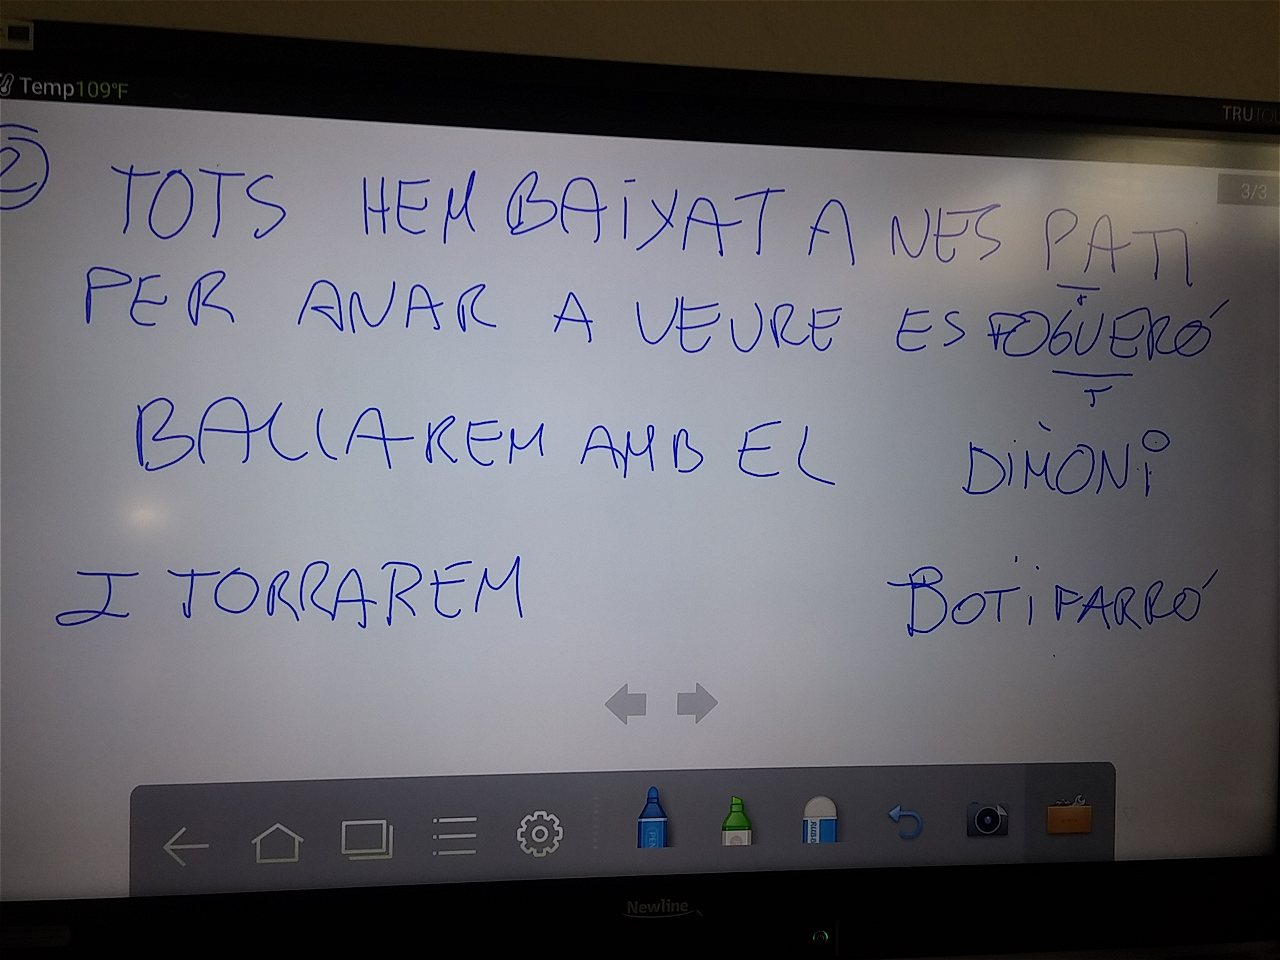 Temp109°F
TRUTO
3/3
2 TOTS HEM BAIXAT A NES PATI
PER ANAR A VEURE ES FOGUERÓ
BALLAREM AMB EL DIMONI
I TORRAREM BOTIFARRÓ
PEN
Newline